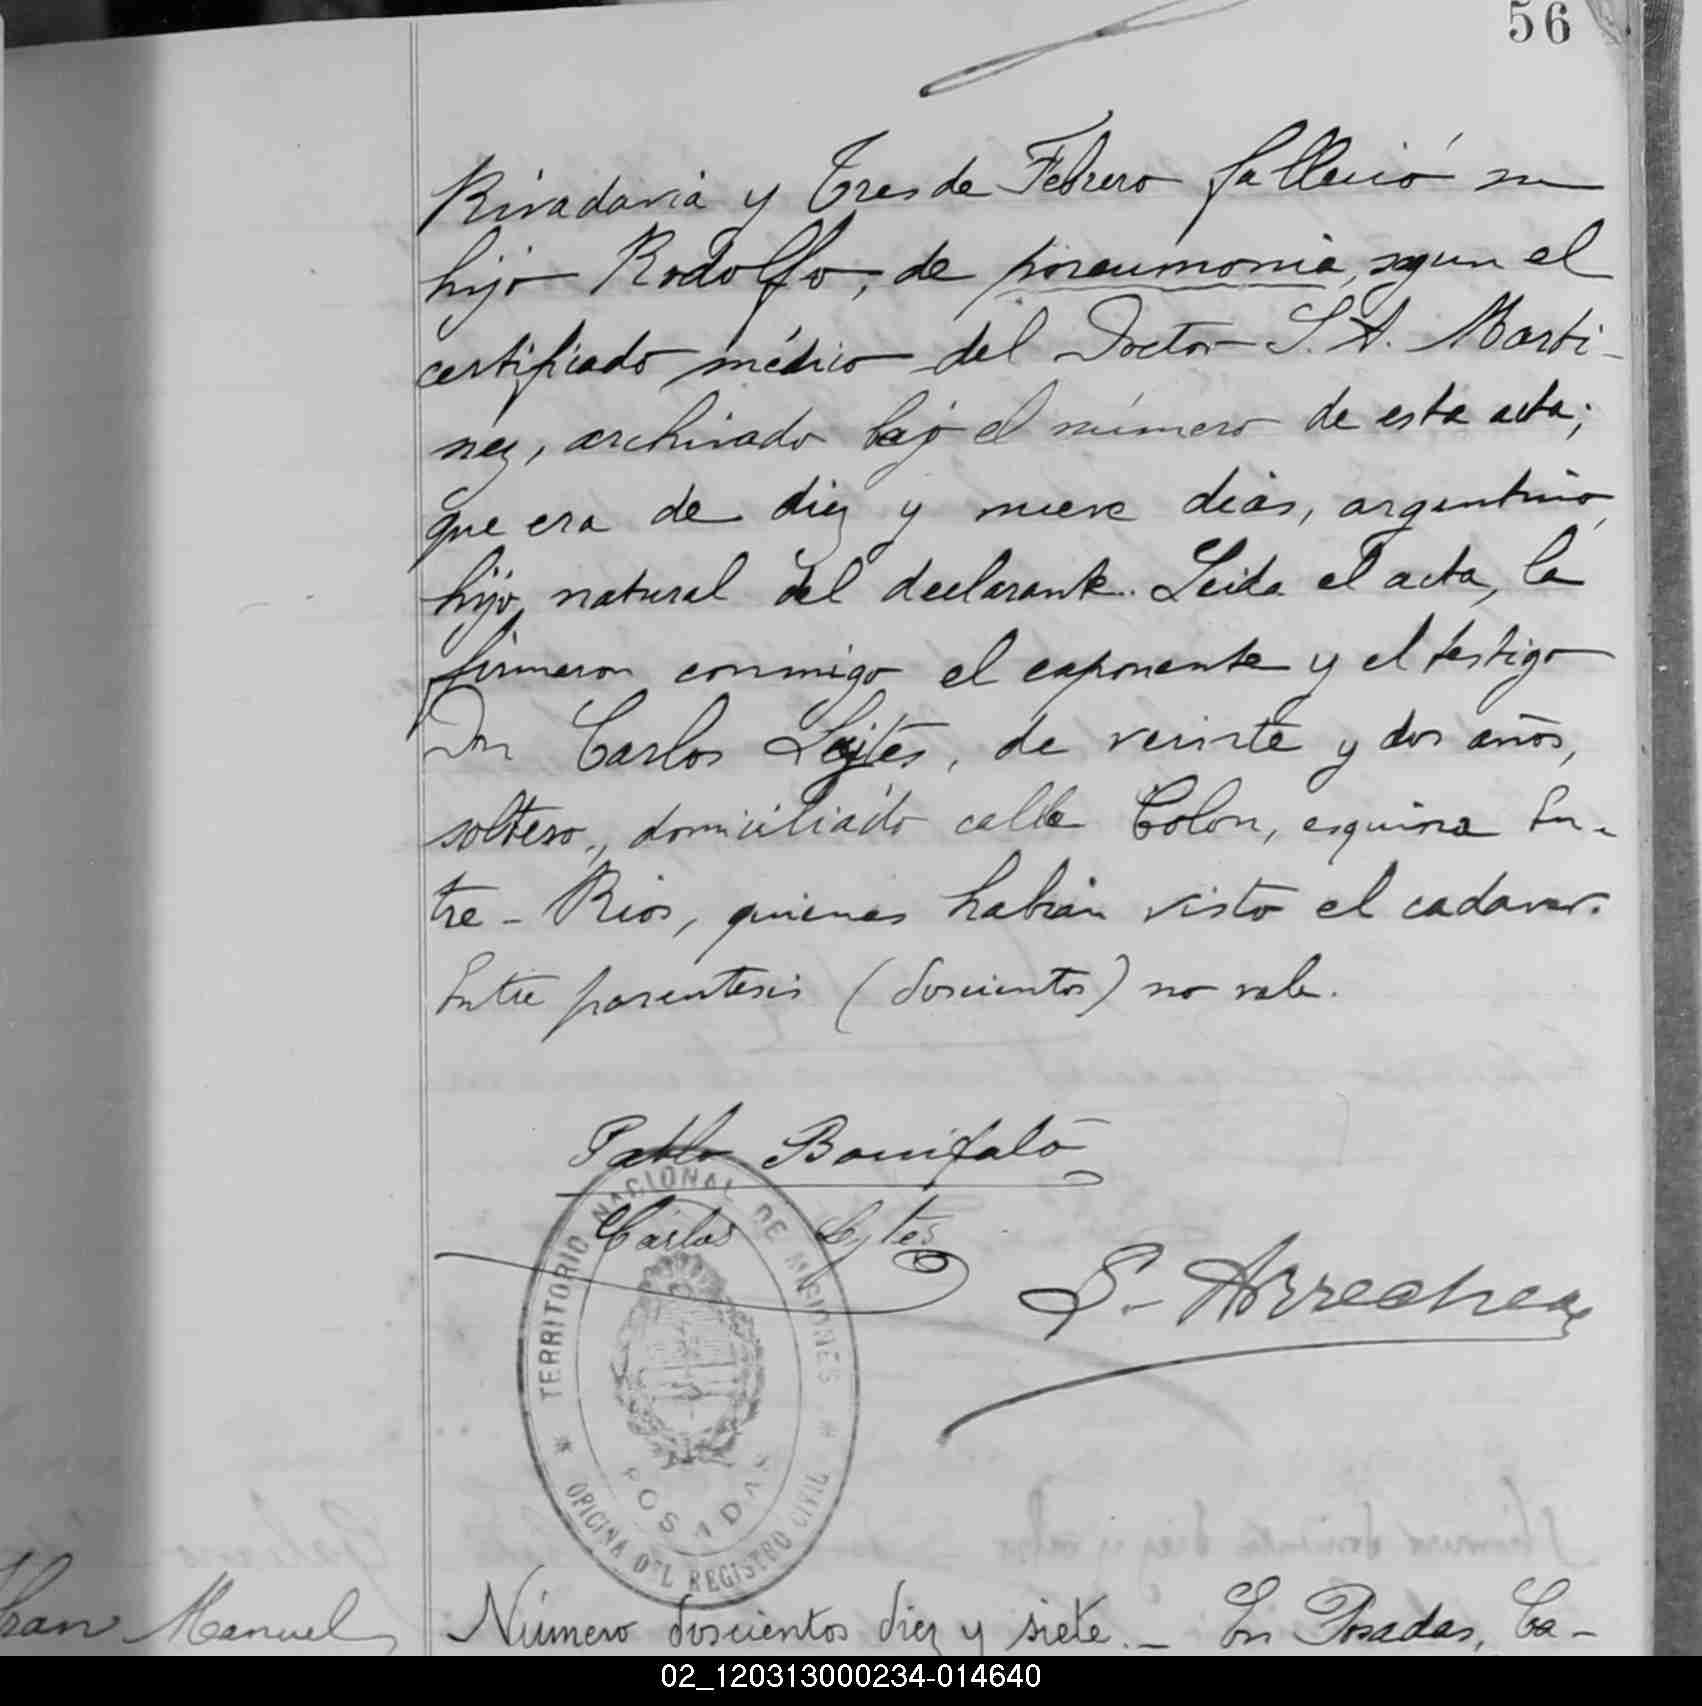 56
Rivadavia y Tres de Febrero falleció su
hijo Rodolfo, de pneumonia, segun el
certificado médico del Doctor S. A. Marti-
nez, archivado bajo el número de esta acta;
que era de diez y nueve dias, argentino,
hijo natural del declarante. Leida el acta, la
firmaron conmigo el exponente y el testigo
Don Carlos Lejtes, de veinte y dos años,
soltero, domiciliado calle Colon, esquina En-
tre-Rios, quienes habian visto el cadaver.
Entre parentesis (doscientos) no vale.
Pablo Bonifató
Carlos Lejtes
S. Arrechea
TERRITORIO NACIONAL DE MISIONES
POSADAS
* OFICINA DEL REGISTRO CIVIL *
Manuel
Número doscientos diez y siete.- En Posadas, Ca-
02_120313000234-014640